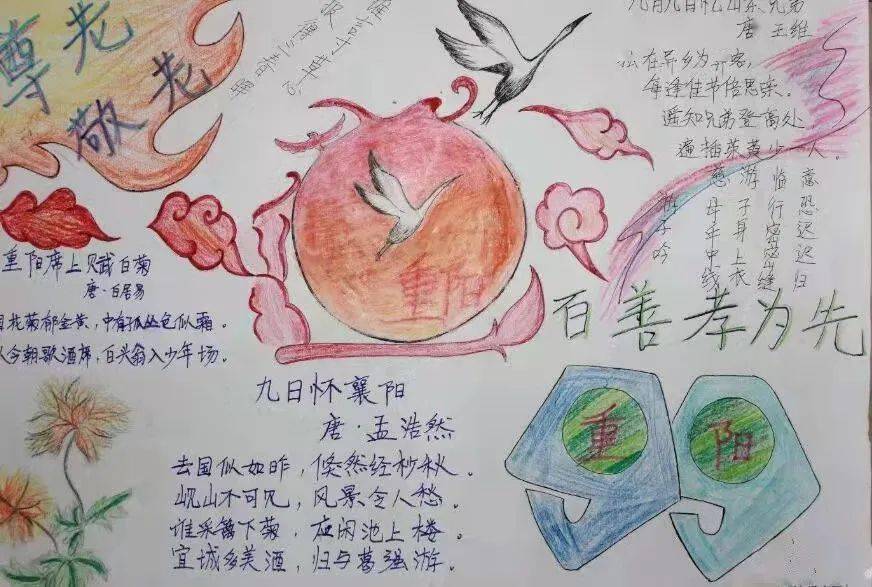 尊老
敬老
谁言寸草心
报得三春晖
九月九日忆山东兄弟
唐 王维
在异乡为客,
每逢佳节倍思亲。
遥知兄弟登高处
遍插茱萸少一人。
游子吟
慈母手中线
游子身上衣
临行密密缝
意恐迟迟归
重阳
重阳席上赋白菊
唐·白居易
园花菊郁金黄,中有孤丛色似霜。
今朝歌酒席,白头翁入少年场。
百善孝为先
九日怀襄阳
唐·孟浩然
去国似如昨,倏然经杪秋。
岘山不可见,风景令人愁。
谁采篱下菊,应闲池上楼。
宜城多美酒,归与葛强游。
重阳